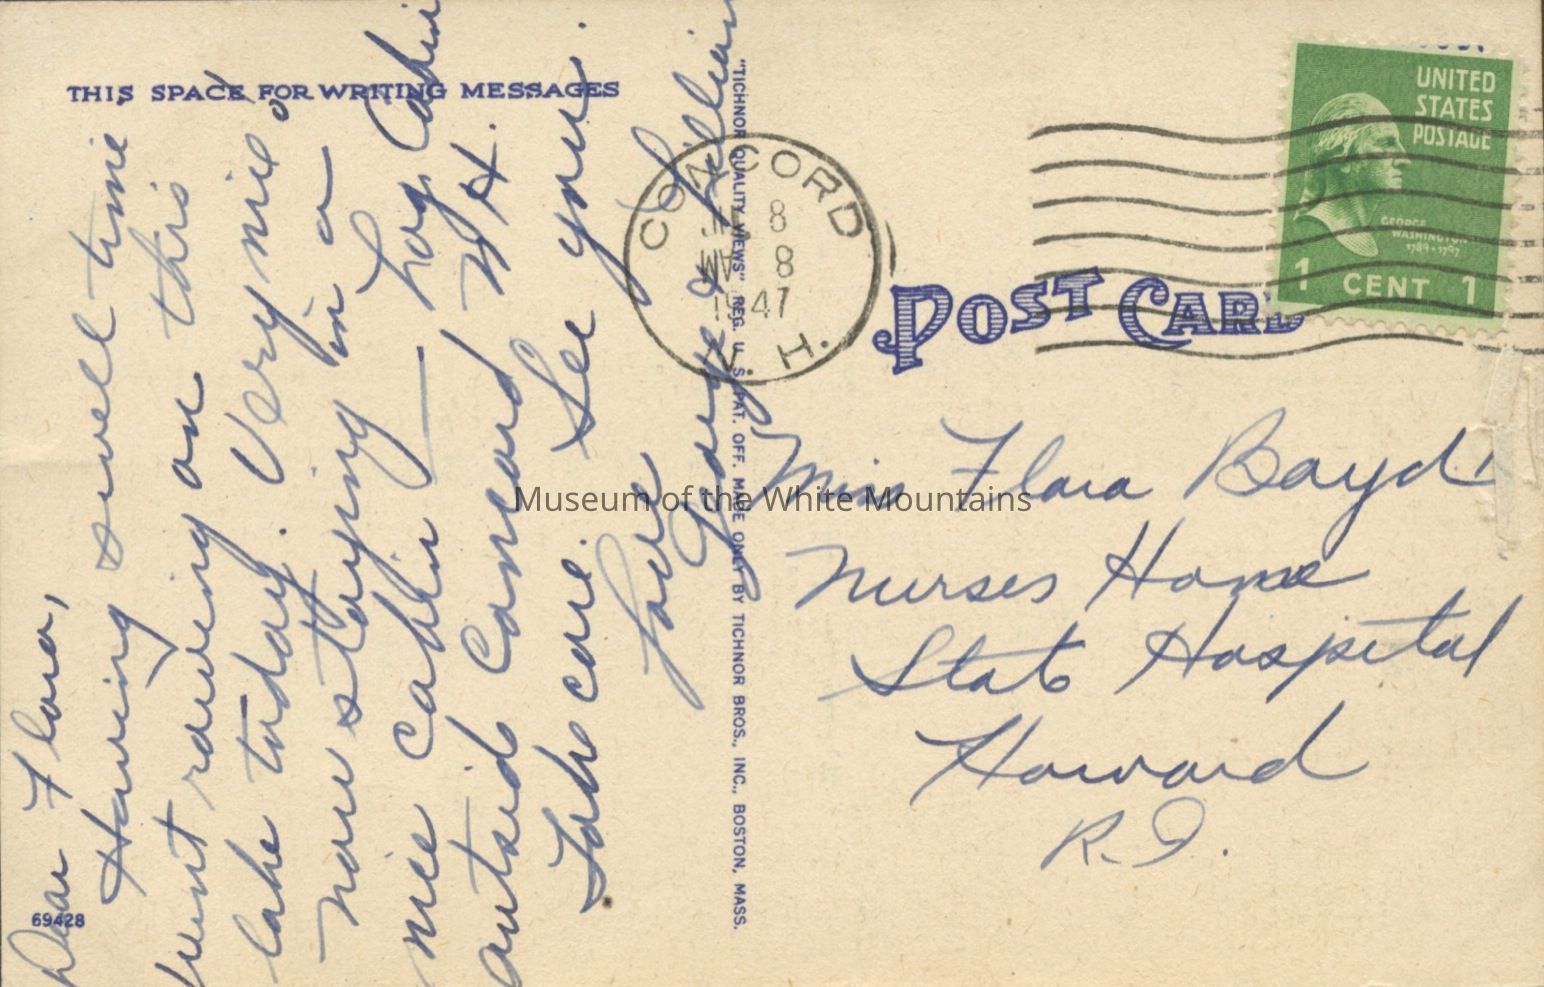 THIS SPACE FOR WRITING MESSAGES
Dear Flora,
Having swell time,
went rowing on this
lake today. Very nice.
Now staying in a
nice cabin – Log Cabin
outside Concord N H.
Take care. See you.
Love
George & Lillian
69428
"TICHNOR QUALITY VIEWS" REG. U. S. PAT. OFF. MADE ONLY BY TICHNOR BROS., INC., BOSTON, MASS.
CONCORD
8
8
1947
N. H.
UNITED
STATES
POSTAGE
GEORGE
WASHINGTON
1789-1797
1 CENT 1
POST CARD
Miss Flora Boyd
Nurses Home
State Hospital
Howard
R.I.
Museum of the White Mountains